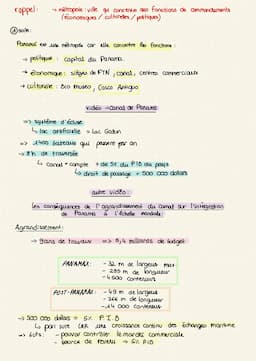 rappel :
→ métropole : ville qui concentre des fonctions de commandements
(économiques / culturelles / politiques)
Panama est une métropole car elle concentre des fonctions :
→ politique : capital du Panama
→ économique : sièges de FTN, canal, centres commerciaux
→ culturelle : Bio museo, Casco Antiguo
vidéo → canal de Panama
=> système d'écluse
↳ lac artificielle = lac Gatun
=> bateaux qui passent par an
=> 8h de traversée
↳ canal = compte + de 5% du PIB du pays
↳ droit de passage = 500 000 dollars
autre vidéo :
les conséquences de l'agrandissement du canal sur l'intégration
de Panama à l'échelle mondiale :
Agrandissement :
→ 9 ans de travaux => 5,4 milliards de budget
PANAMAX : - 32 m de largeur max
- 295 m de longueur
- 4 500 conteneurs
POST-PANAMAX : - 49 m de largeur
- 366 m de longueur
- 14 000 conteneurs
→ 500 000 dollars → 5% P.I.B
↳ pari sur une croissance continu des échanges maritime
→ buts : - pouvoir contrôler le marché commerciale
- source de revenu → 5% PIB